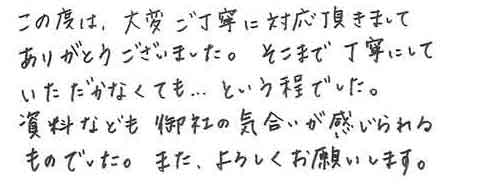 この度は、大変ご丁寧に対応頂きまして
ありがとうございました。そこまで丁寧にして
いただかなくても…という程でした。
資料なども御社の気合いが感じられる
ものでした。また、よろしくお願いします。